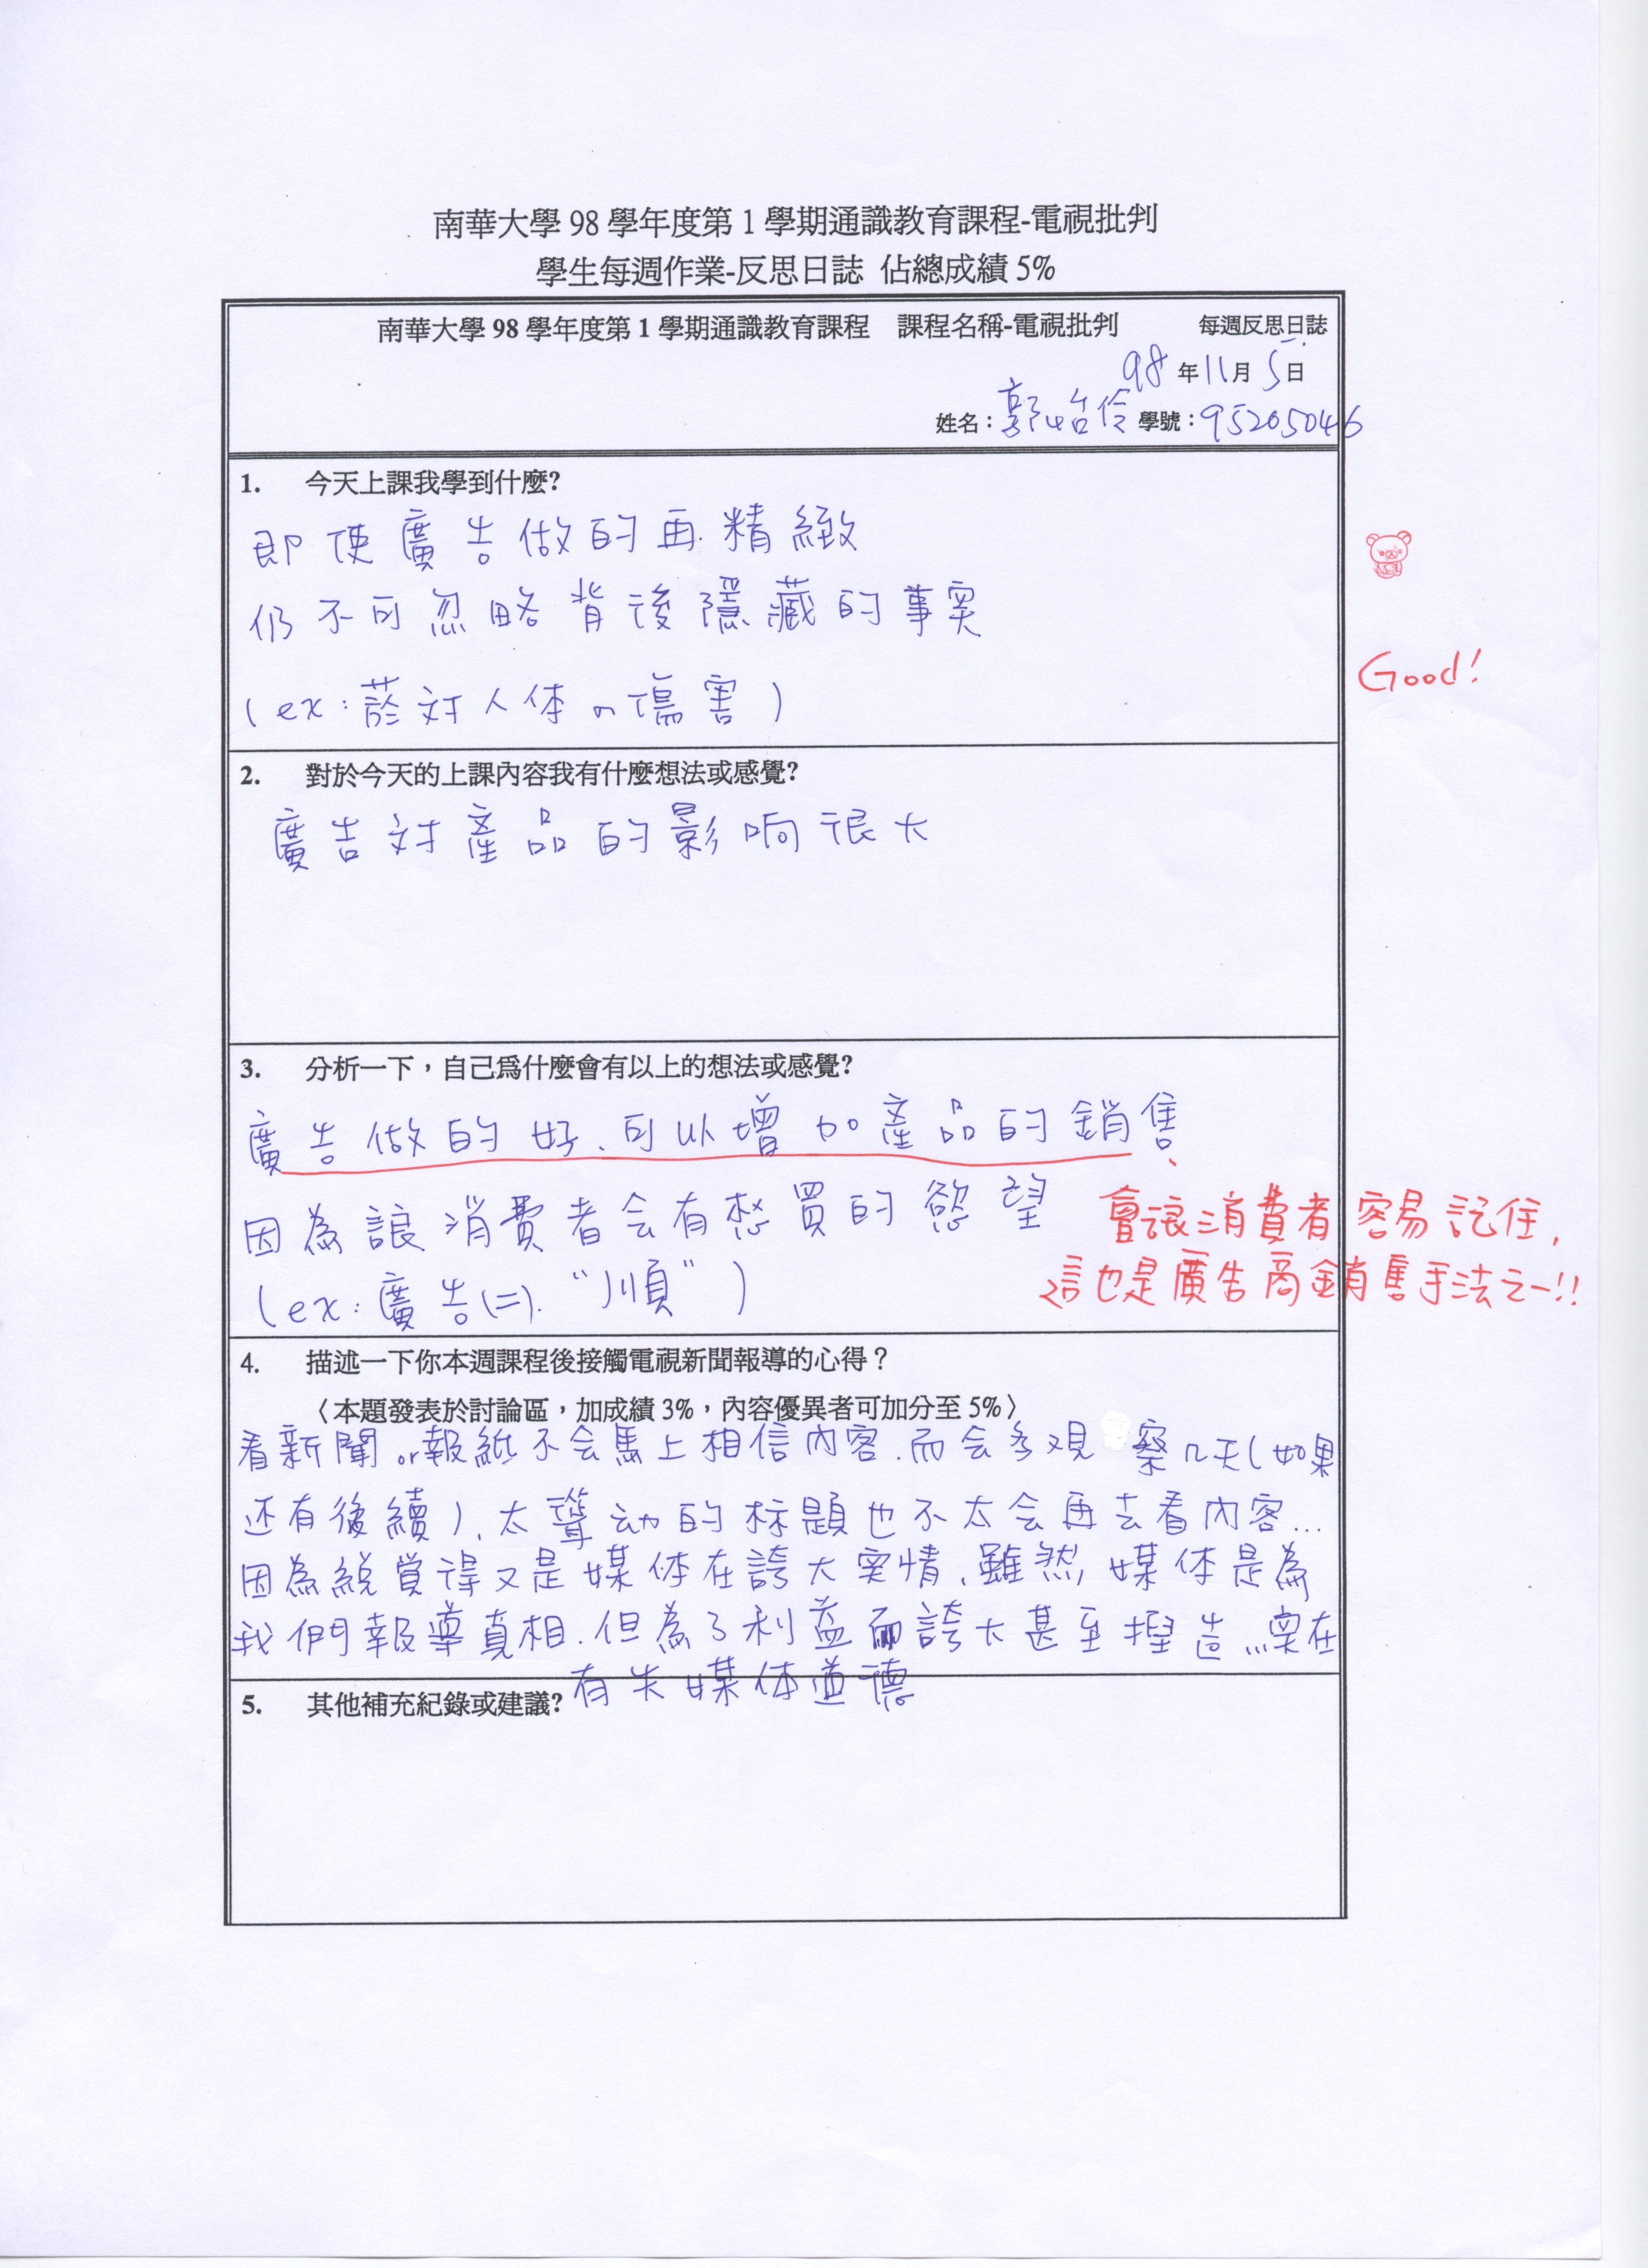 南華大學 98 學年度第 1 學期通識教育課程-電視批判
學生每週作業-反思日誌 佔總成績 5%
南華大學 98 學年度第 1 學期通識教育課程 課程名稱-電視批判 每週反思日誌
98 年 11 月 5 日
姓名：郭怡伶 學號：95205046
1. 今天上課我學到什麼?
即使廣告做的再精緻
仍不可忽略背後隱藏的事実
(ex：菸对人体の傷害)
Good!
2. 對於今天的上課內容我有什麼想法或感覺?
廣告对產品的影响很大
3. 分析一下，自己為什麼會有以上的想法或感覺?
廣告做的好、可以增加產品的銷售
因為讓消費者会有想買的慾望
會讓消費者容易記住,
(ex：廣告(二). "川順")
這也是廣告商銷售手法之一!!
4. 描述一下你本週課程後接觸電視新聞報導的心得？
〈本題發表於討論區，加成績 3%，內容優異者可加分至 5%〉
看新聞or報紙不会馬上相信內容.而会多观察几天(如果
还有後續)、太聳动的标題也不太会再去看內容...
因為總覺得又是媒体在誇大実情、雖然,媒体是為
我們報導真相.但為了利益而誇大甚至捏造...実在
有失媒体道德
5. 其他補充紀錄或建議?